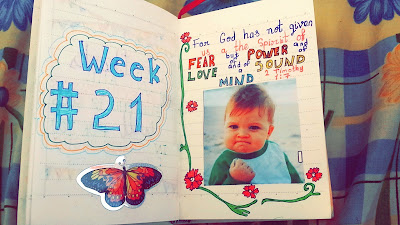 Week
# 21
For God has not given
us a the Spirit of
FEAR but POWER and
LOVE and of SOUND
MIND 2 Timothy
1:7